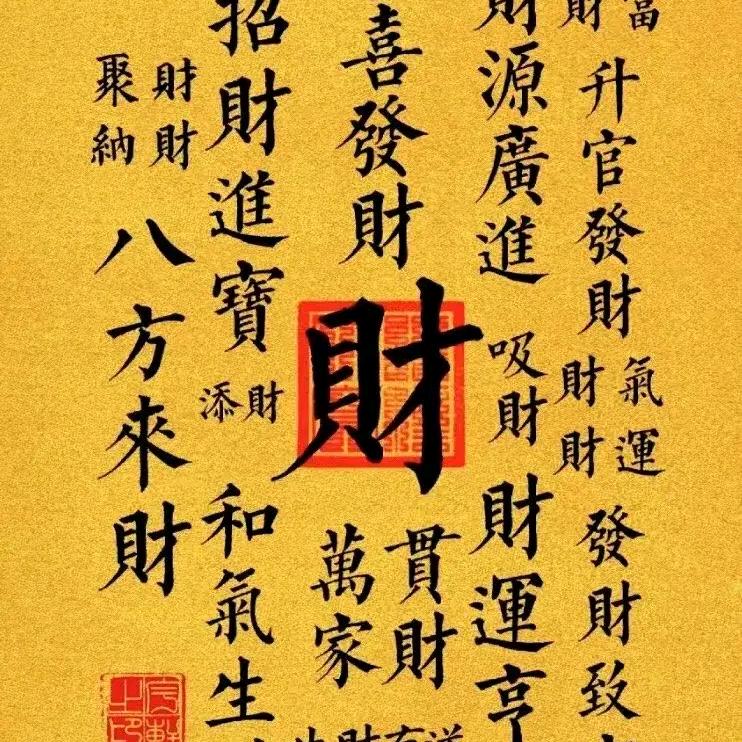 財富
升官發財
財氣
財運
發財致
財源廣進
吸財
財運亨
喜發財
財
萬貫
家財
生財有道
招財進寶
添財
和氣生
聚財
納財
八方來財